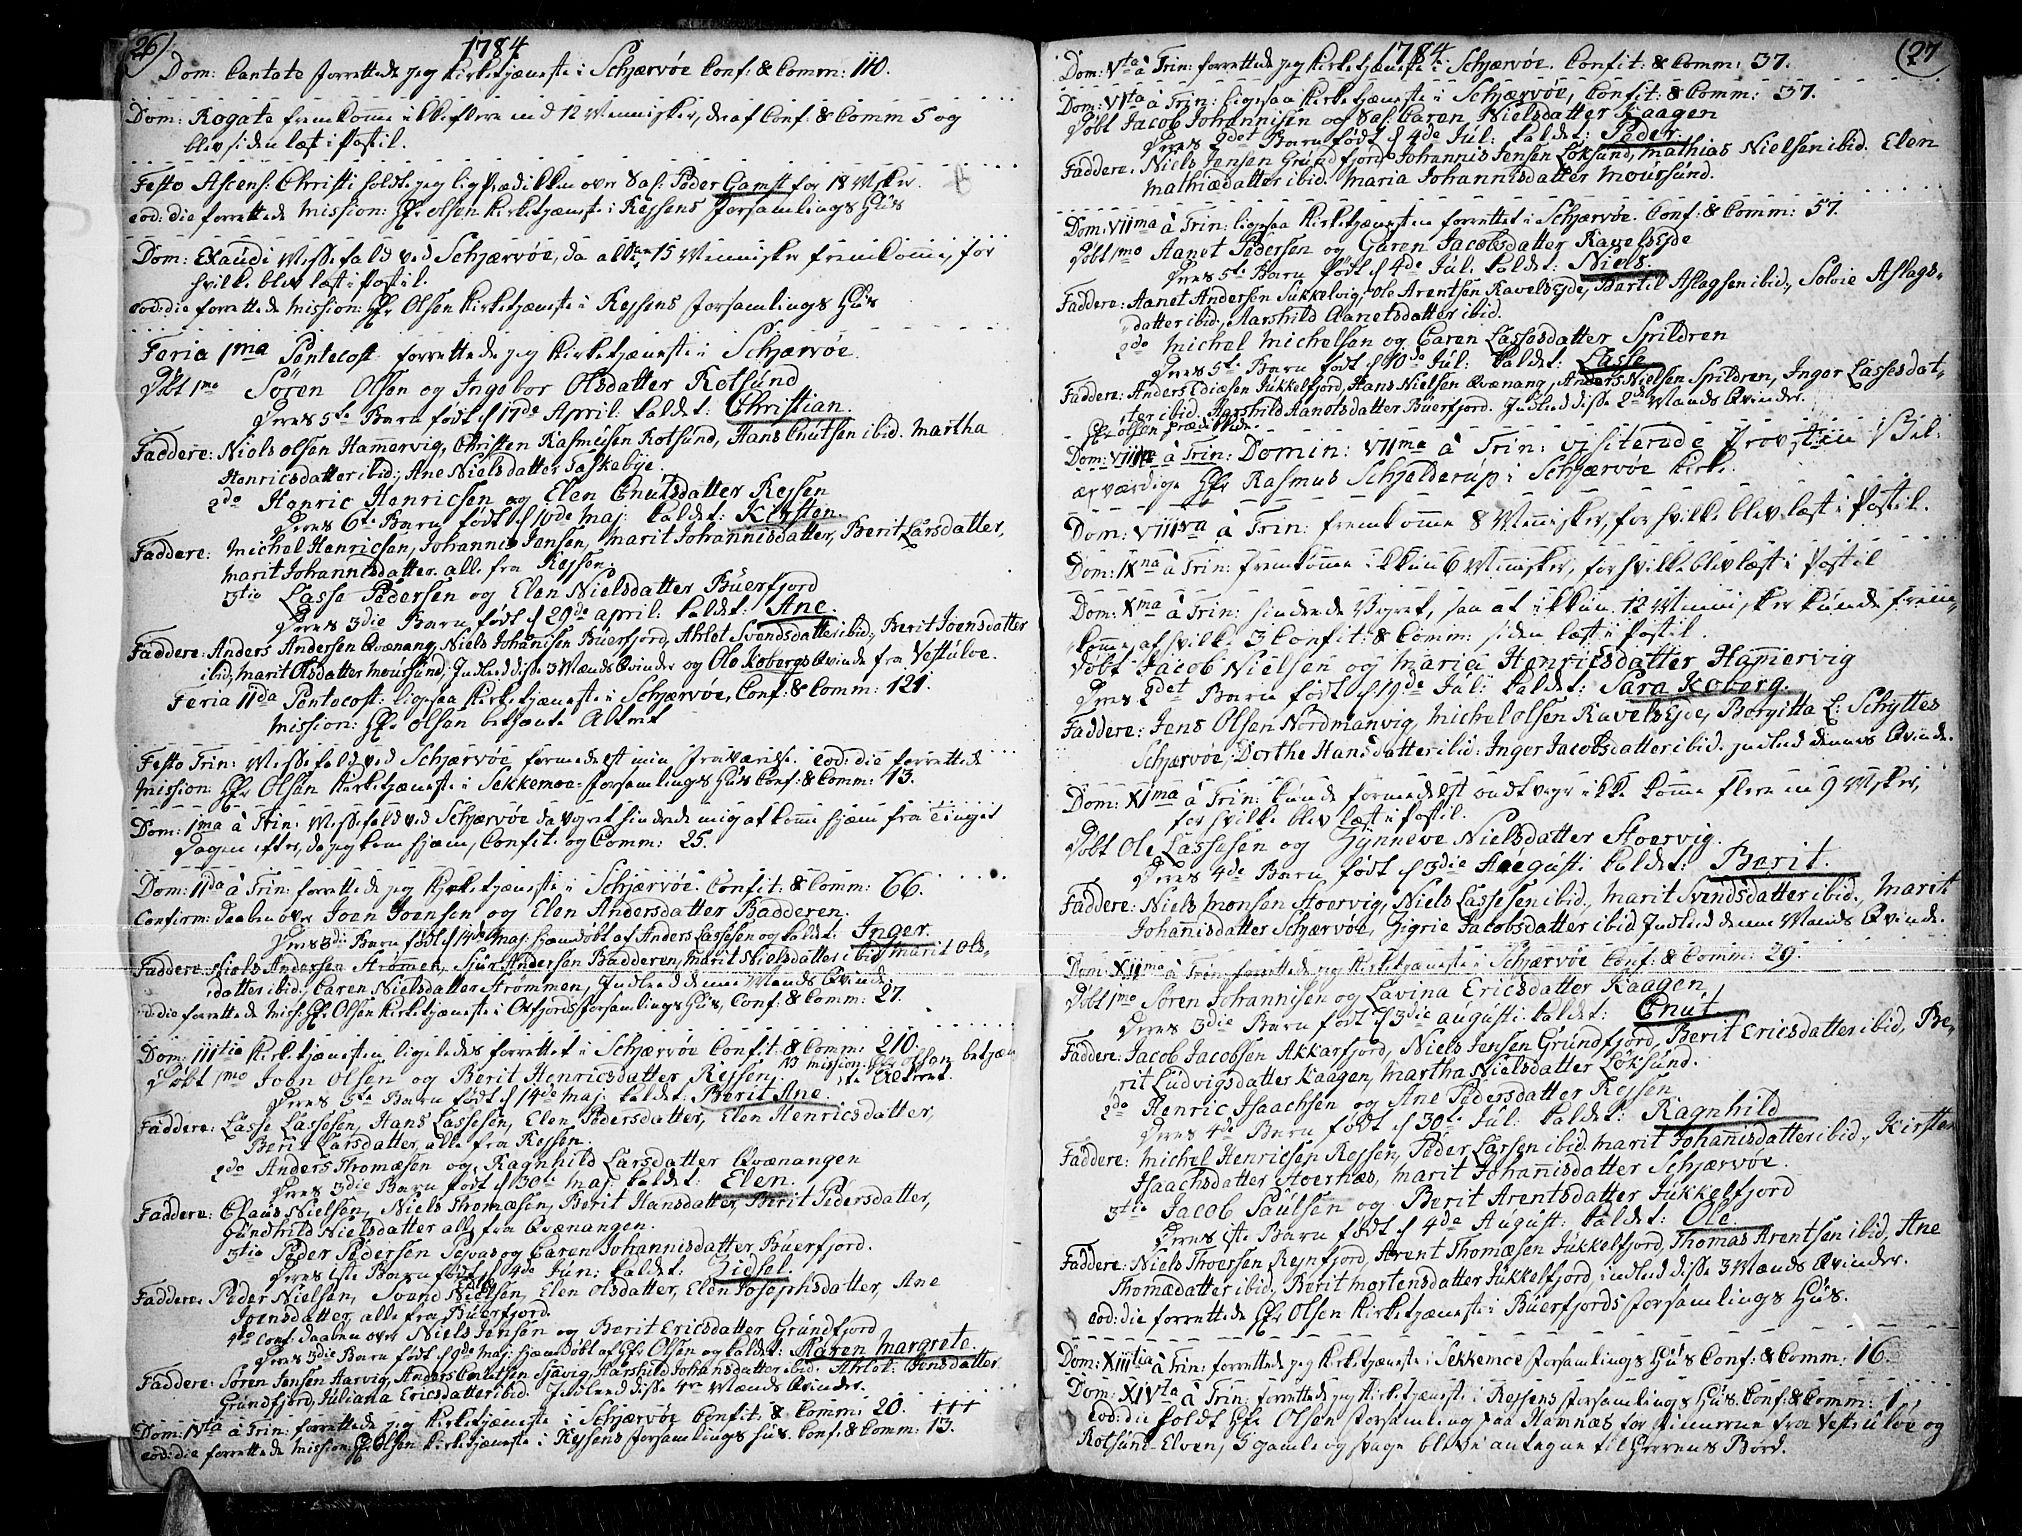 26)
1784
Dom: Cantate forrettede jeg Kirketjæneste i Schjærvøe Conf: & Comm: 110.
Dom: Rogate fremkomme ikke flere end 12 Mennisker, deraf Conf: & Comm 5 og
blev siden læst i Postil.
Festo Ascens: Christi holdt jeg ligprædiken over Sal: Peder Gamst for 18 Msker.
eod: die forrettede Mission: Hr Olsen Kirketjæneste i Rejsens Forsamlings Hús
Dom: Exaudi Messefald ved Schjærvøe, da alene 15 Mennisker fremkomme, for
hvilke blev læst i Postil.
eod: die forrettede Mission: Hr Olsen Kirketjæneste i Rejsens Forsamlings Hús
Feria 1ma Pentecost forrettede jeg Kirketjæneste i Schjærvøe
Døbt 1mo Sören Olsen og Ingebor Olsdatter Rotsúnd
Deres 5te Barn født d 17de April: kaldet: Christian.
Faddere: Niels Olsen Hamervig, Christen Rasmúsen Rotsúnd, Hans Cnútsen ibid. Martha
Henricsdatter ibid:, Ane Nielsdatter Taskebye.
2do Henric Henricsen og Elen Cnutsdatter Rejsen
Deres 6te Barn født d 10de Maj: kaldet: Kirsten.
Faddere: Michel Henricsen, Johannis Jensen, Marit Johannisdatter, Berit Larsdatter,
Marit Johannisdatter. alle fra Rejsen.
3tio Lasse Pedersen og Elen Nielsdatter Búerfjord
Deres 3die Barn født d 29de april: kaldet: Ane.
Faddere: Anders Andersen Qvænang, Niels Johanisen Búerfjord, Ahlet Svendsdatter ibid:, Berit Joensdatter
ibid, Marit Olsdatter Moúrsúnd, Indled disse 3 Mænds Qvinder og Ole Kobergs Qvinde fra Vestúlve.
Feria 11da Pentecost: ligesaa Kirketjæneste i Schjærvøe, Conf: & Comm: 121.
Mission: Hr Olsen betjænte Alteret
Festo Trin: Messefald ved Schjærvøe, formedelst min Fraværelse. eod: die forrettede
Mission: Hr Olsen Kirketjæneste i Sekkemoe Forsamlings Hús Conf: & Comm: 13.
Dom: 1ma à Trin: Messefald ved Schjærvøe da veyret hindrede mig at komme hjem fra Tinget
Dagen efter, da jeg kom hjem, Confit: og Comm: 25.
Dom: 11da à Trin: forrettede jeg Kirketjæneste i Schjærvøe Confit: & Comm: 66.
Confirm: daaben over Joen Joensen og Elen Andersdatter Badderen.
Deres 3die Barn født d 14de Maj: hjemdøbt af Anders Lassesen og kaldet: Inger.
Faddere: Niels Andersen Strømmen, Sjúr Andersen Badderen, Marit Nielsdatter ibid, Marit Ols-
datter ibid. Caren Nielsdatter Strömmen, Indled denne Mands Qvinde
eod: die forrettede Miss: Hr Olsen Kirketjæneste i Oxfjords Forsamlings Hús, Conf: & Comm: 27.
Dom: 111tia Kirketjænesten ligeledes forrettet i Schjærvøe Confit: & Comm: 210.
NB Mission: Hr Olsen betjæn-
Døbt 1mo Joen Olsen og Berit Henricsdatter Rejsen.
te Alteret.
Deres 5te Barn født d 14de Maj: kaldet: Berit Ane.
Faddere: Lasse Lassesen, Hans Lassesen, Elen Pedersdatter, Elen Henricsdatter,
Berit Larsdatter, alle fra Rejsen.
2do Anders Thomæsen og Ragnhild Larsdatter Qvænangen
Deres 3die Barn født d 30te Maj: kaldet: Elen.
Faddere: Claús Nielsen, Niels Thomæsen, Berit Hansdatter, Berit Pedersdatter,
Gúndhild Nielsdatter alle fra Qvænangen.
3tio Peder Pedersen Pejvas og Caren Johannisdatter Búerfjord.
Deres 1ste Barn født d 4de Jún: kaldet: Zidsel.
Faddere. Peder Nielsen, Svend Nielsen, Elen Olsdatter, Elen Josephsdatter, Ane
Joensdatter alle fra Búerfjord.
4to Conf: daaben over Niels Jensen og Berit Ericsdatter Gründfjord
Deres 3die Barn født d 9de Maj: hjemdøbt af Hr Olsen og kaldet: Karen Margrete.
Faddere: Sören Jensen Aarvig, Anders Cnútsen Siavig, Harshild Johansdatter ibid. Ahlet Jensdatter
Gründfjord, Júliana Ericsdatter ibid. Indled disse 4re Mænds Qvinder.
Dom: IVta à Trin: forrettede jeg Kirketjæneste i Schjærvøe Confit: & Comm: 20. +++
eod: die forrettede Mission: Hr Olsen Kirketjæneste i Rejsens Forsamlings Hús. Conf: & Comm: 13.
1784
(27
Dom: Vta à Trin: forrettede jeg Kirketjæneste i Schjærvøe. Confit: & Comm: 37.
Dom: VIta à Trin: ligesaa Kirketjæneste i Schjærvøe, Confit: & Comm: 37.
Døbt Jacob Johannisen og Sal: Caren Nielsdatter Kaagen
Deres 2det Barn født d 4de Júl: kaldet: Peder.
Faddere. Niels Jensen Gründfjord, Johannis Jensen Löksúnd, Mathias Nielsen ibid. Elen
Mathiædatter ibid. Maria Johannisdatter Moúrsúnd.
Dom: VIIma à Trin: ligesaa Kirketjænesten forrettet i Schjærvøe. Conf: & Comm: 57.
Døbt 1mo Aanet Pedersen og Caren Jacobsdatter Ravelsejde
Deres 5te Barn født d 4de Júl: kaldet: Niels.
Faddere: Aanet Andersen Súkkelvig, Ole Arentsen Ravelsejde, Bartil Aslagsen ibid., Solvie Aslags-
datter ibid., Aarshild Aanetsdatter ibid.
2do Michel Michelsen og Caren Lassesdatter Spildren
Deres 5te Barn født d 10de Júl: kaldet: Lasse
Faddere: Anders Ediæsen Jukkelfjord, Hans Nielsen Qvænang, Anders Nielsen Spildren, Inger Lassesdat-
ter ibid. Aarshild Aanotsdatter Búerfjord. Indled disse 2de Mænds Qvinder.
Hr Olsen prædikede.
Dom: VIIIma à Trin: Domin: VIIma à Trin: visiterede Provsten Vel-
ærværdige Hr Rasmus Schjelderúp i Schjærvøe Kirke.
Dom: VIIIva à Trin: fremkomme 8 Mennisker, for hvilke blev læst i Postil.
Dom: IXna à Trin: fremkomme ikkun 6 Mennisker, for hvilke blev læst i Postil
Dom: Xma à Trin: hindrede Veyret, saa at ikkun 12 Mennisker kúnde frem-
komme af hvilke 3 Confit: & Comm: siden læst i Postil.
Døbt Jacob Nielsen og Maria Henricsdatter Hamervig
Deres 2det Barn født d 19de Júli: kaldet: Sara Koberg.
Faddere: Jens Olsen Nordmanvig, Michel Olsen Ravelsejde, Bergitta L: Schyttes
Schjærvøe, Dorthe Hansdatter ibid: Inger Jacobsdatter ibid. indled dennes Qvinde.
Dom: XIma à Trin: kunde formedelst ondt veyr ikke komme flere en 9 Msker,
for hvilke blev læst i Postil.
Døbt Ole Lassesen og Zÿnneve Nielsdatter Stoervig.
Deres 4de Barn født d 3die Aúgústi: kaldet: Berit.
Faddere: Niels Monsen Stoervig, Niels Lassesen ibid., Marit Svendsdatter ibid., Marit
Johanisdatter Schjærvøe, Zigrie Jacobsdatter ibid Indled denne Mands Qvinde.
Dom: XIIma à Trin: forrettede jeg Kirketjæneste i Schjærvøe Conf: & Comm: 29.
Døbt 1mo Sören Johannisen og Lavina Ericsdatter Kaagen
Deres 3die Barn født d 3die augusti: kaldet: Cnút.
Faddere: Jacob Jacobsen Akkarfjord, Niels Jensen Gründfjord, Berit Ericsdatter ibid, Be-
rit Ludvigsdatter Kaagen, Martha Nielsdatter Löksúnd.
2do Henric Isaachsen og Ane Pedersdatter Rejsen
Deres 4de Barn født d 30te Júl: kaldet: Ragnhild
Faddere: Michel Henricsen Rejsen, Peder Larsen ibid. Marit Johanisdatter ibid., Kirsten
Isaachsdatter Stoernæs, Marit Johannisdatter Schjærvøe.
3tio Jacob Paúlsen og Berit Arentsdatter Jükkelfjord
Deres 1ste Barn født d 4de August: kaldet: Ole.
Faddere: Niels Thoersen Rejnfjord, Arent Thomæsen Jükkelfjord, Thomas Arentsen ibid, Ane
Thomædatter ibid:, Berit Mortensdatter Jükkelfjord, indled disse 3 Mænds Qvinder.
eod: die forrettede Hr Olsen Kirketjæneste i Búerfjords Forsamlings Hús.
Dom: XIIItia à Trin: forrettede jeg Kirketjæneste i Sekkemoe Forsamlings Hús Conf: & Comm: 16.
Dom: XIVta à Trin: forrettede jeg Kirketjæneste i Rejsens Forsamlings Hús. Conf: & Comm: 1.
eod: die holdt Hr Olsen Forsamling paa Hamnæs for Finnerne fra Vesteulvöe og
Rotsúnd-Elven, 5 gamle og svage bleve antegne til Herrens Bord.